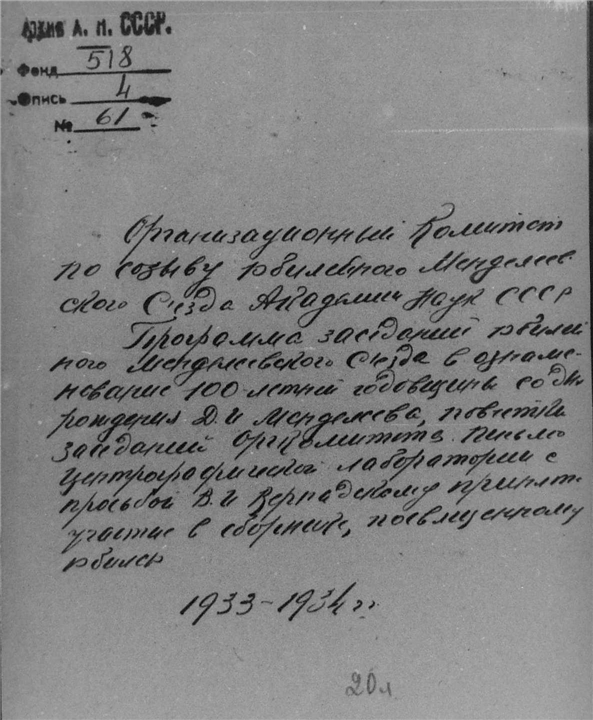 Архив А. Н. СССР.
Фонд 518
Опись 4
№ 61
Организационный Комитет
по созыву юбилейного Менделеев-
ского Съезда Академии Наук СССР
Программа заседаний юбилей
ного Менделеевского Съезда в ознаме-
нование 100-летней годовщины со дня
рождения Д. И Менделеева, повестки
заседаний Оргкомитета. Письмо
Центрографической лаборатории с
просьбой В. И Вернадскому принять
участие в сборнике, посвященному
юбилею
1933-1934 гг.
20 л.